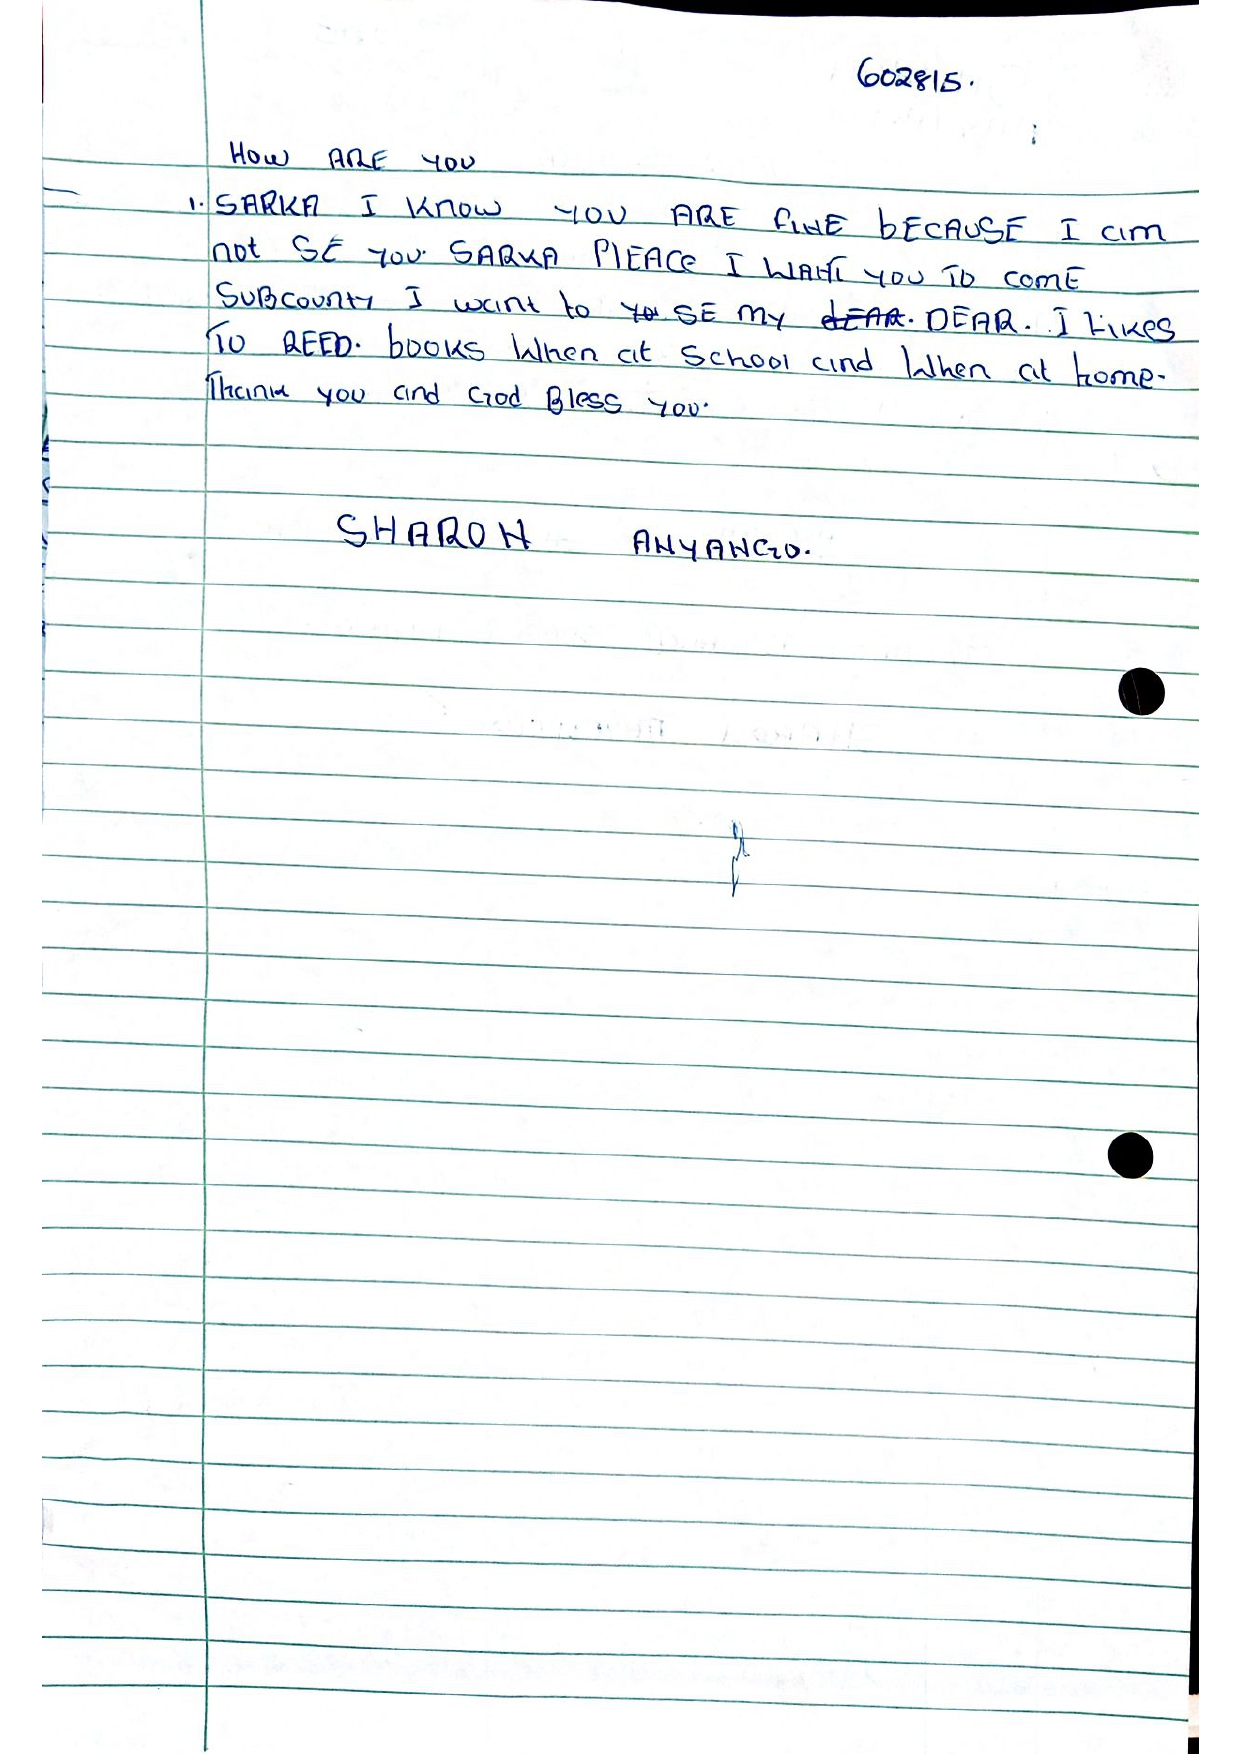 602815.
HOW ARE YOU
1. SARKA I KNOW YOU ARE FINE bECAUSE I am
not SE YOU. SARKA PlEACe I WANT YOU TO COME
SUBCOUNTY I want to you SE My dEAR. DEAR. I Likes
TO REED. books When at School and When at home.
Thank you and God Bless you.
SHARON ANYANGO.